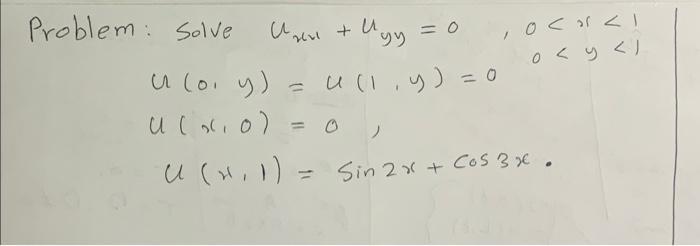 Problem: Solve Uxx + Uyy = 0 , 0 < x < 1
0 < y < 1
U(0, y) = U(1, y) = 0
U(x, 0) = 0 ,
U(x, 1) = Sin 2x + Cos 3x.